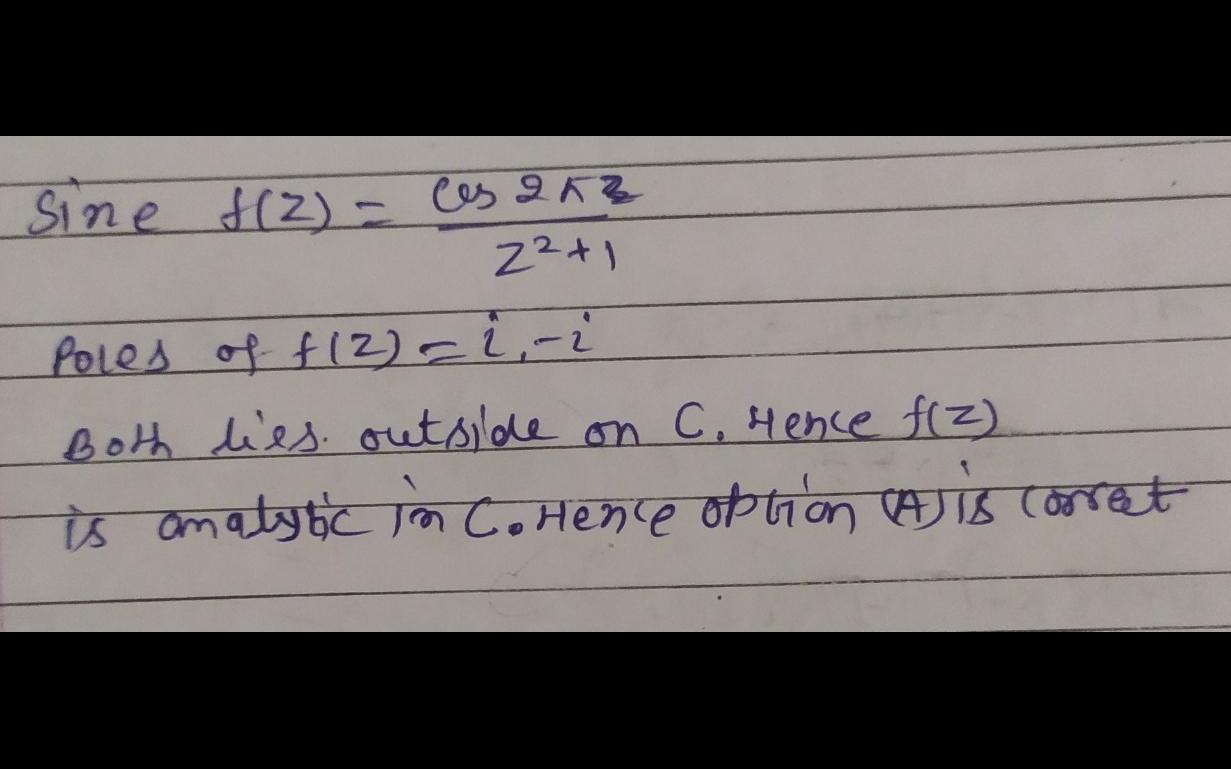 Sine f(z) = cos 2πz / z²+1
Poles of f(z) = i, -i
Both lies outside on C. Hence f(z)
is analytic in C. Hence option (A) is corret